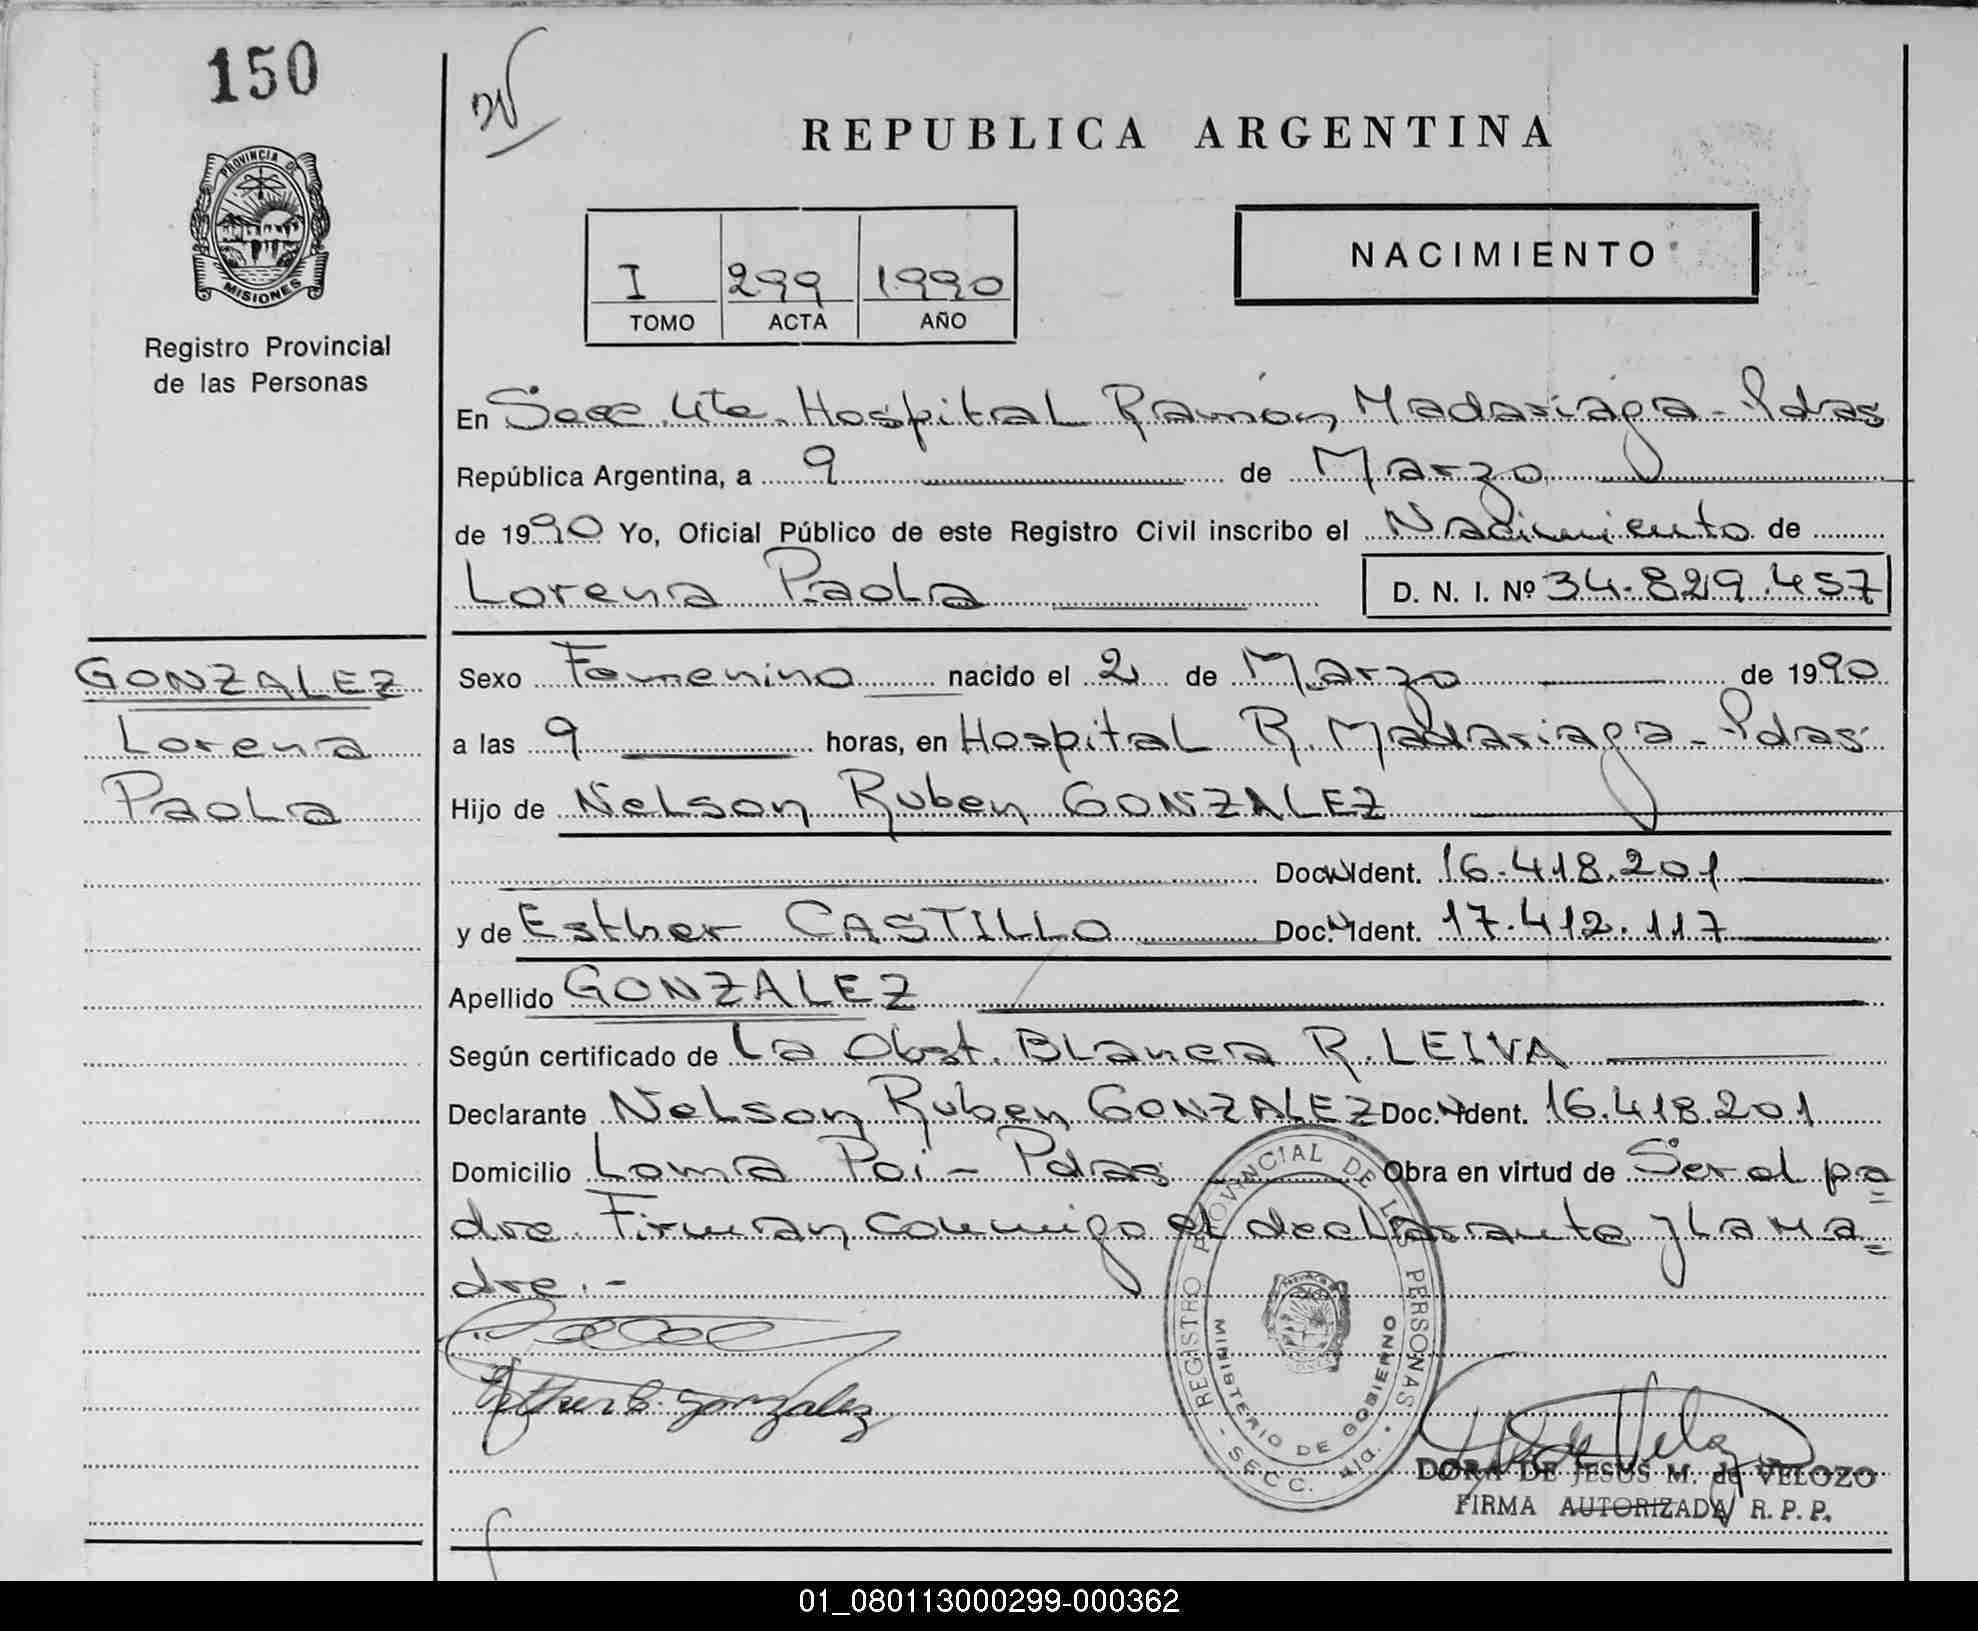 150
PROVINCIA DE
MISIONES
Registro Provincial
de las Personas
REPUBLICA ARGENTINA
I 299 1990
TOMO ACTA AÑO
NACIMIENTO
En Secc. 4ta. Hospital Ramón Madariaga - Pdas
República Argentina, a 9 de Marzo
de 1990 Yo, Oficial Público de este Registro Civil inscribo el Nacimiento de
Lorena Paola D. N. I. Nº 34.829.457
GONZALEZ
Lorena
Paola
Sexo Femenino nacido el 2 de Marzo de 1990
a las 9 horas, en Hospital R. Madariaga - Pdas
Hijo de Nelson Ruben GONZALEZ
Doc. Ident. 16.418.201
y de Esther CASTILLO Doc. Ident. 17.412.117
Apellido GONZALEZ
Según certificado de La Obst. Blanca R. LEIVA
Declarante Nelson Ruben GONZALEZ Doc. Ident. 16.418.201
Domicilio Loma Poi - Pdas Obra en virtud de Ser el pa=
dre. Firman conmigo el declarante y la Ma=
dre.-
REGISTRO PROVINCIAL DE LAS PERSONAS
MINISTERIO DE GOBIERNO
- SECC. 4ta. -
Esther C. Gonzalez
DORA DE JESUS M. de VELOZO
FIRMA AUTORIZADA R. P. P.
01_080113000299-000362